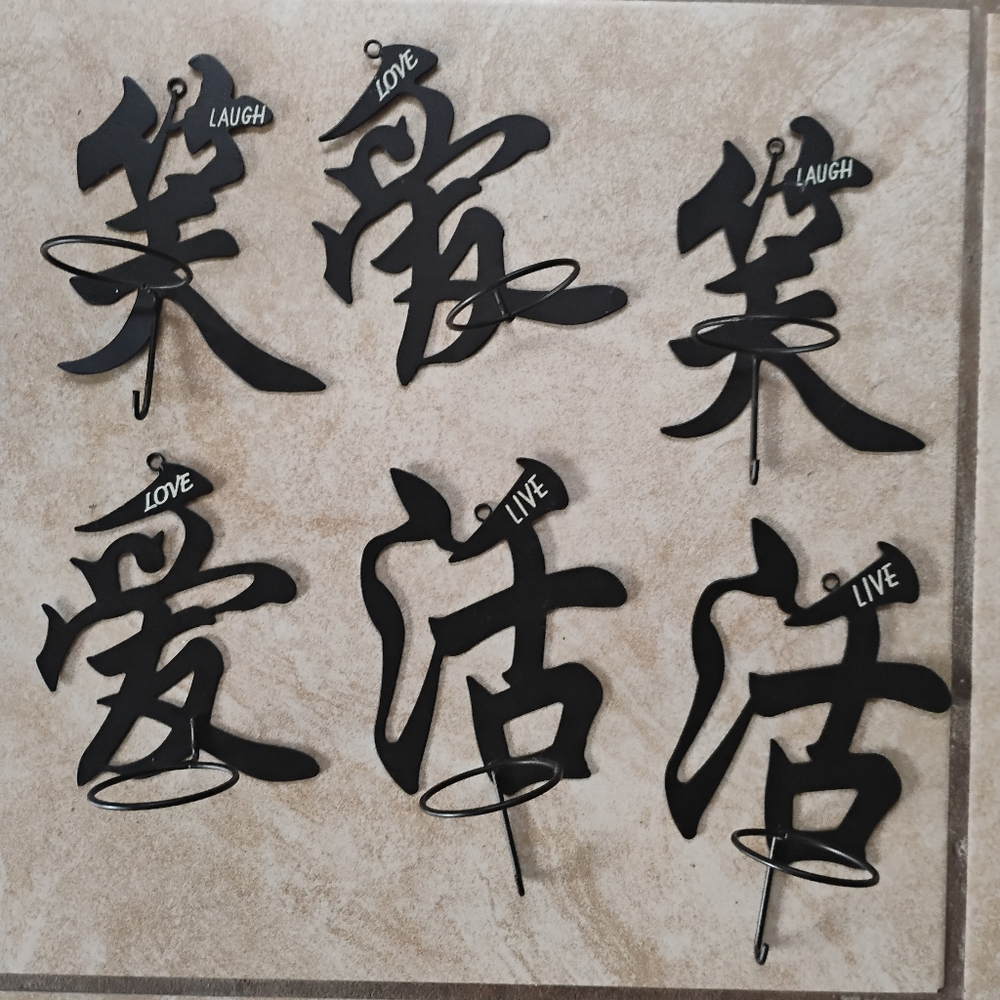 笑
LAUGH
愛
LOVE
笑
LAUGH
愛
LOVE
活
LIVE
活
LIVE